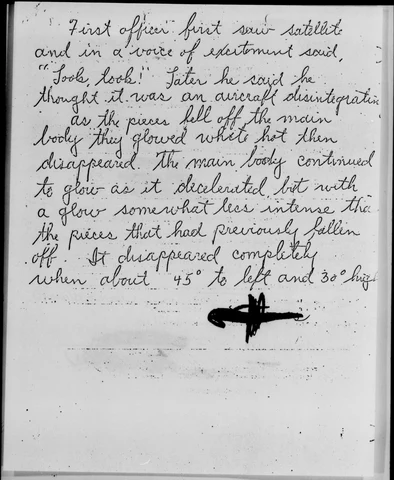 First officer first saw satellite
and in a voice of excitement said,
"Look, look!" Later he said he
thought it was an aircraft disintegratin
as the pieces fell off the main
body they glowed white hot then
disappeared. The main body continued
to glow as it decelerated but with
a glow somewhat less intense tha
the pieces that had previously fallen
off. It disappeared completely
when about 45° to left and 30° high